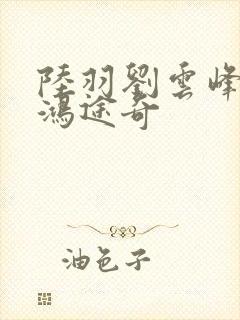 陸羽劉雲峰
鴻途奇
油色子